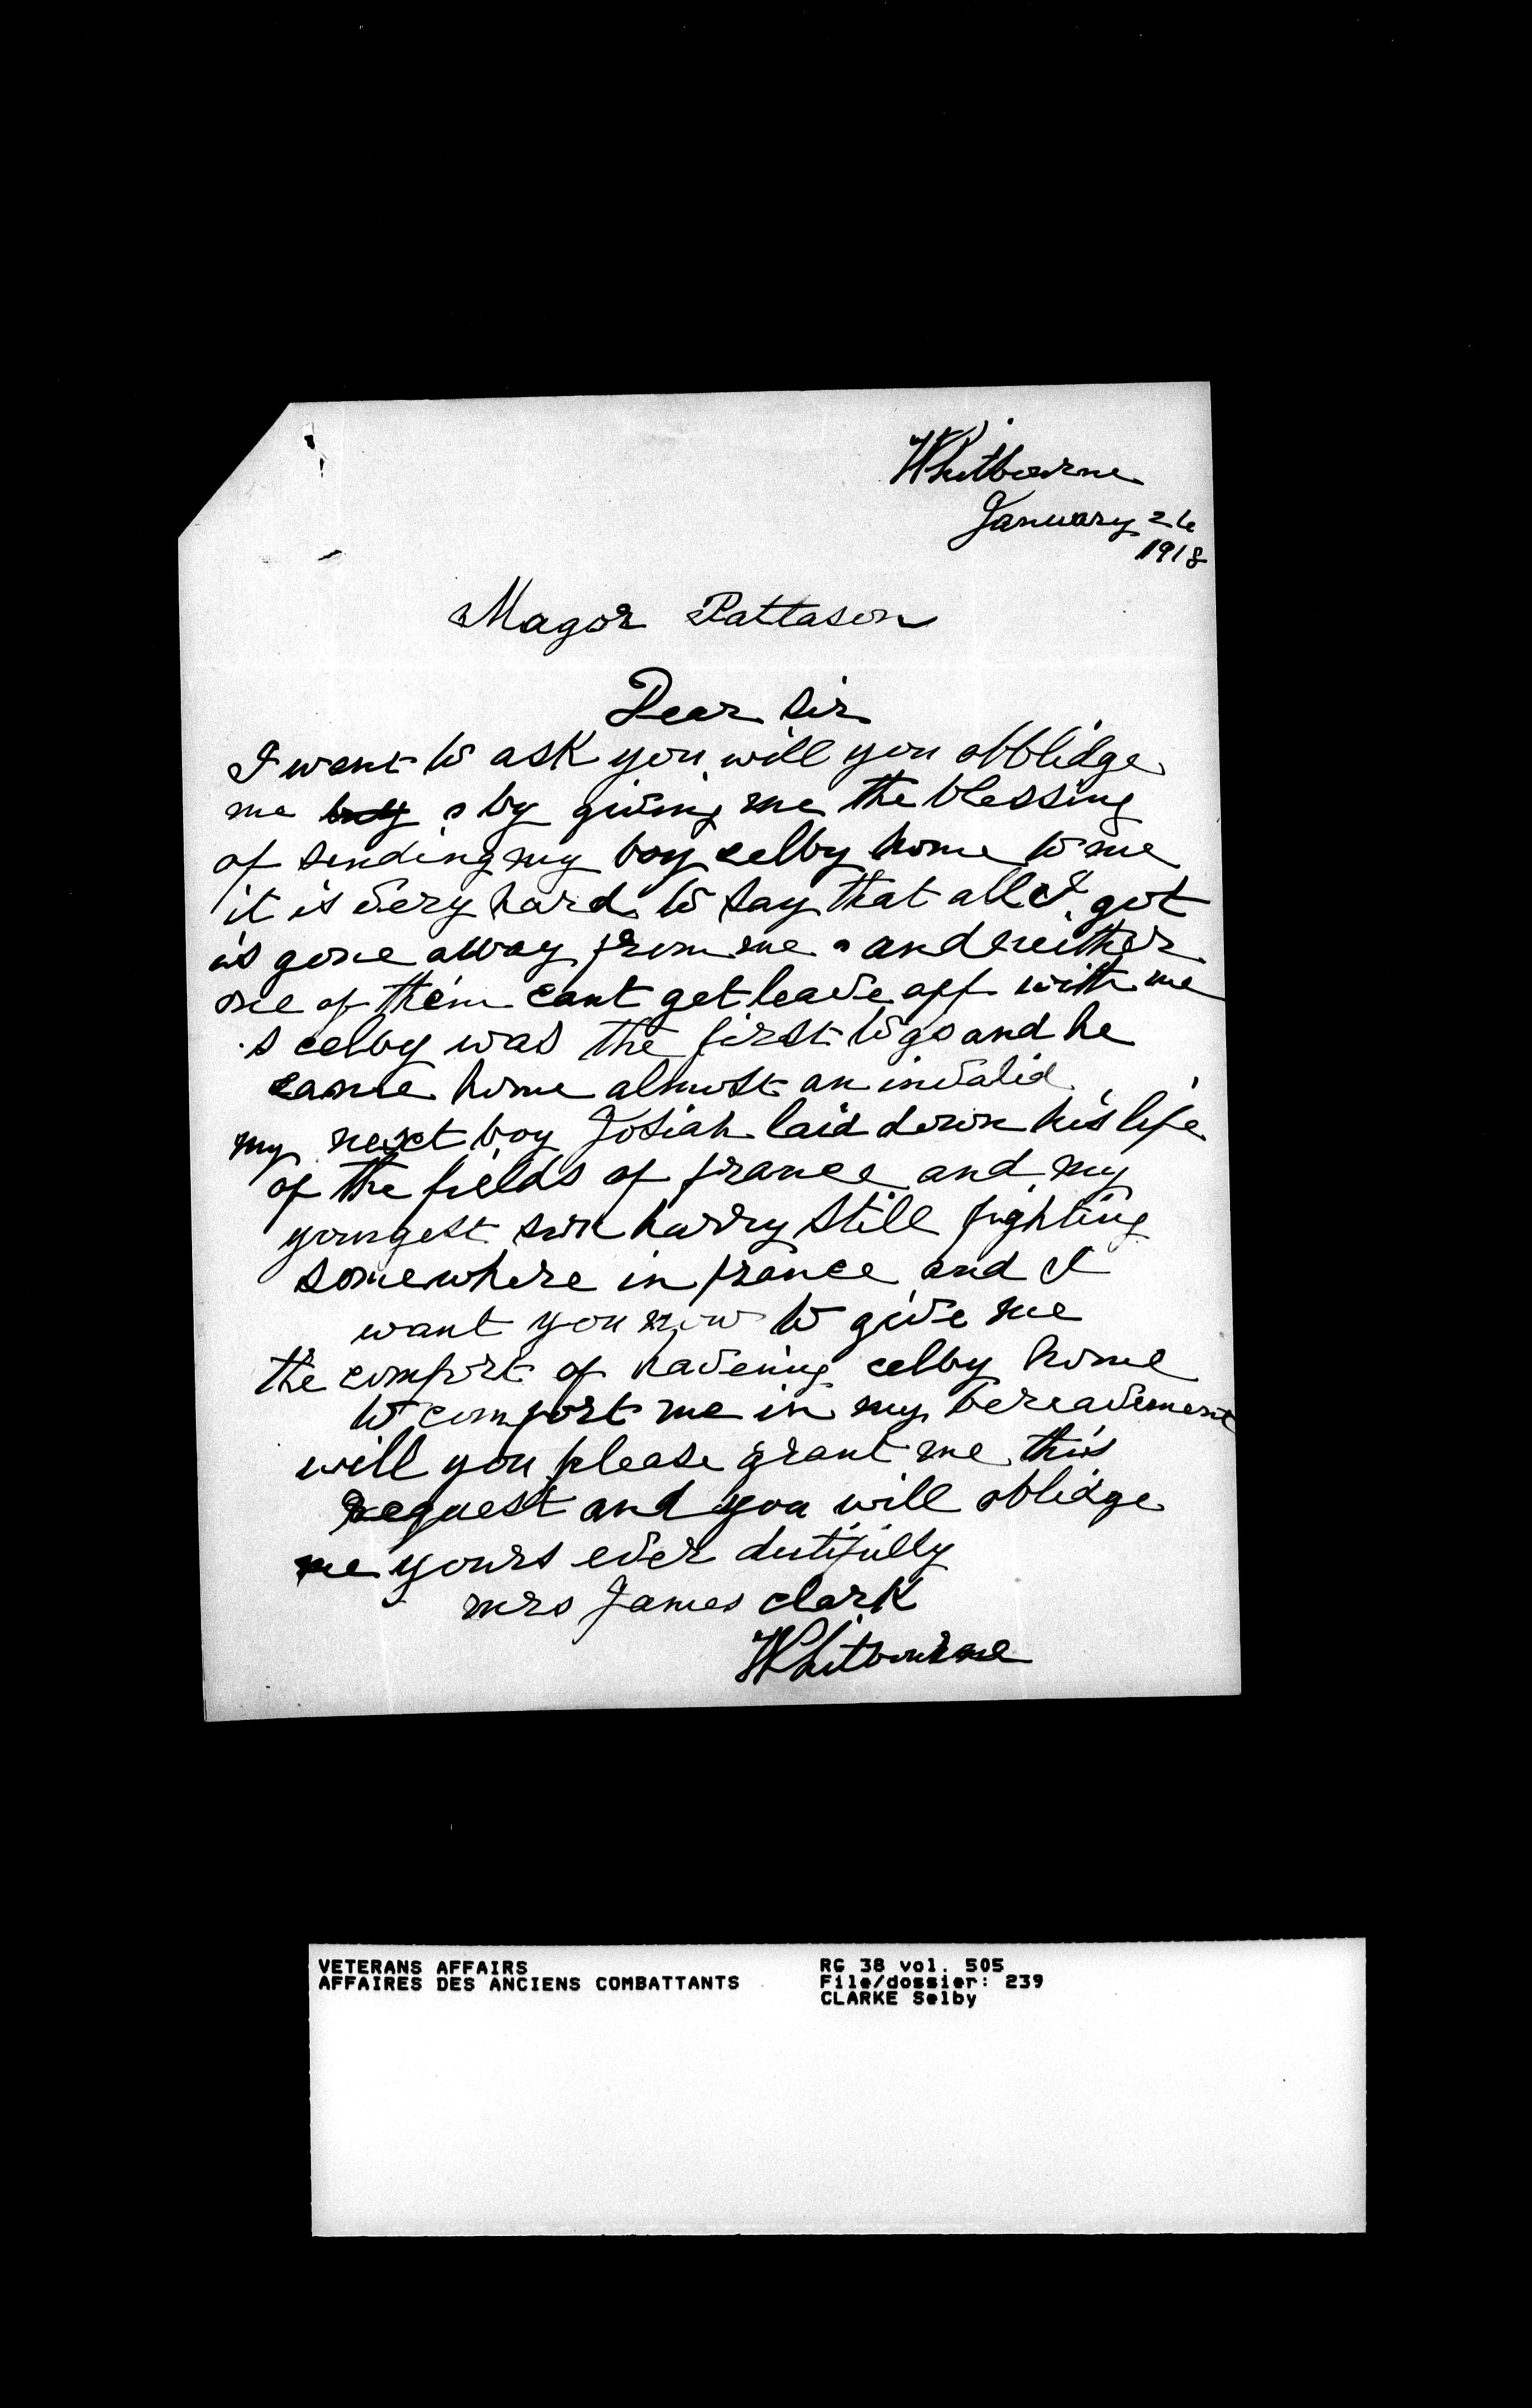 Whitbourne
January 26
1918
Magor Pattason
Dear Sir
I want to ask you will you obblidge
me by giving me the blessing
of sending my boy celby home to me
it is very hard to say that all I got
is gone away from me and neither
one of them cant get leave off with me
s celby was the first to go and he
came home almost an invalid
my next boy Josiah laid down his life
of the fields of france and my
youngest son harry still fighting
somewhere in france and I
want you now to give me
the comfort of haveing celby home
to comfort me in my bereavement
will you please grant me this
request and you will oblidge
me yours ever dutifully
mrs James clark
Whitbourne
VETERANS AFFAIRS
AFFAIRES DES ANCIENS COMBATTANTS
RG 38 vol. 505
File/dossier: 239
CLARKE Selby